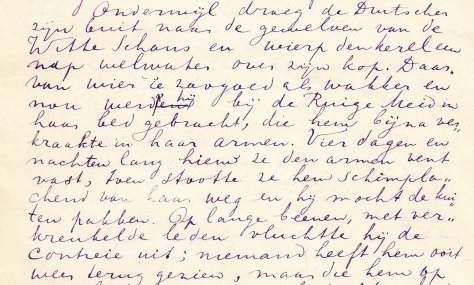 Ondermijl droeg de Duitscher
zijn buit naar de gewelven van de
Witte Schans en wierp den kerel een
nap welwater over zijn kop. Daar-
van wier ie zoogoed als wakker en
nou werd hij bij de Ruige Meid in
haar bed gebracht, die hem bijna ver-
kraakte in haar armen. Vier dagen en
nachten lang hield ze den armen vent
vast, toen stootte ze hem schimpla-
chend van haar weg en hij mocht de kui-
ten pakken. Op lange beenen, met ver-
kreukelde leden vluchtte hij de
contreie uit; niemand heeft hem ooit
weer terug gezien, maar die hem op